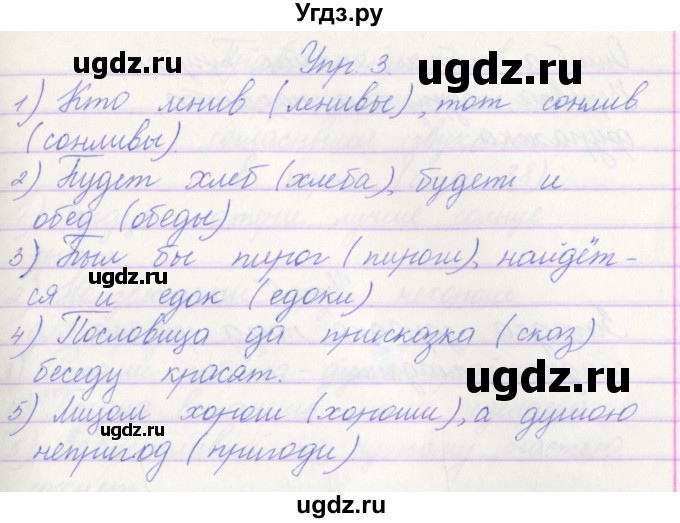 Угдз.ру
Упр. 3.
1) Кто ленив (ленивы), тот сонлив
(сонливы)
2) Будет хлеб (хлеба), будет и
обед (обеды)
3) Был бы пирог (пироги), найдёт-
ся и едок (едоки)
4) Пословица да присказка (сказ)
беседу красят.
5) Лицом хорош (хороши), а душою
непригод (пригоди)
ugdz.ru
ugdz.ru
ugdz.ru
ugdz.ru
ugdz.ru
ugdz.ru
ugdz.ru
ugdz.ru
ugdz.ru